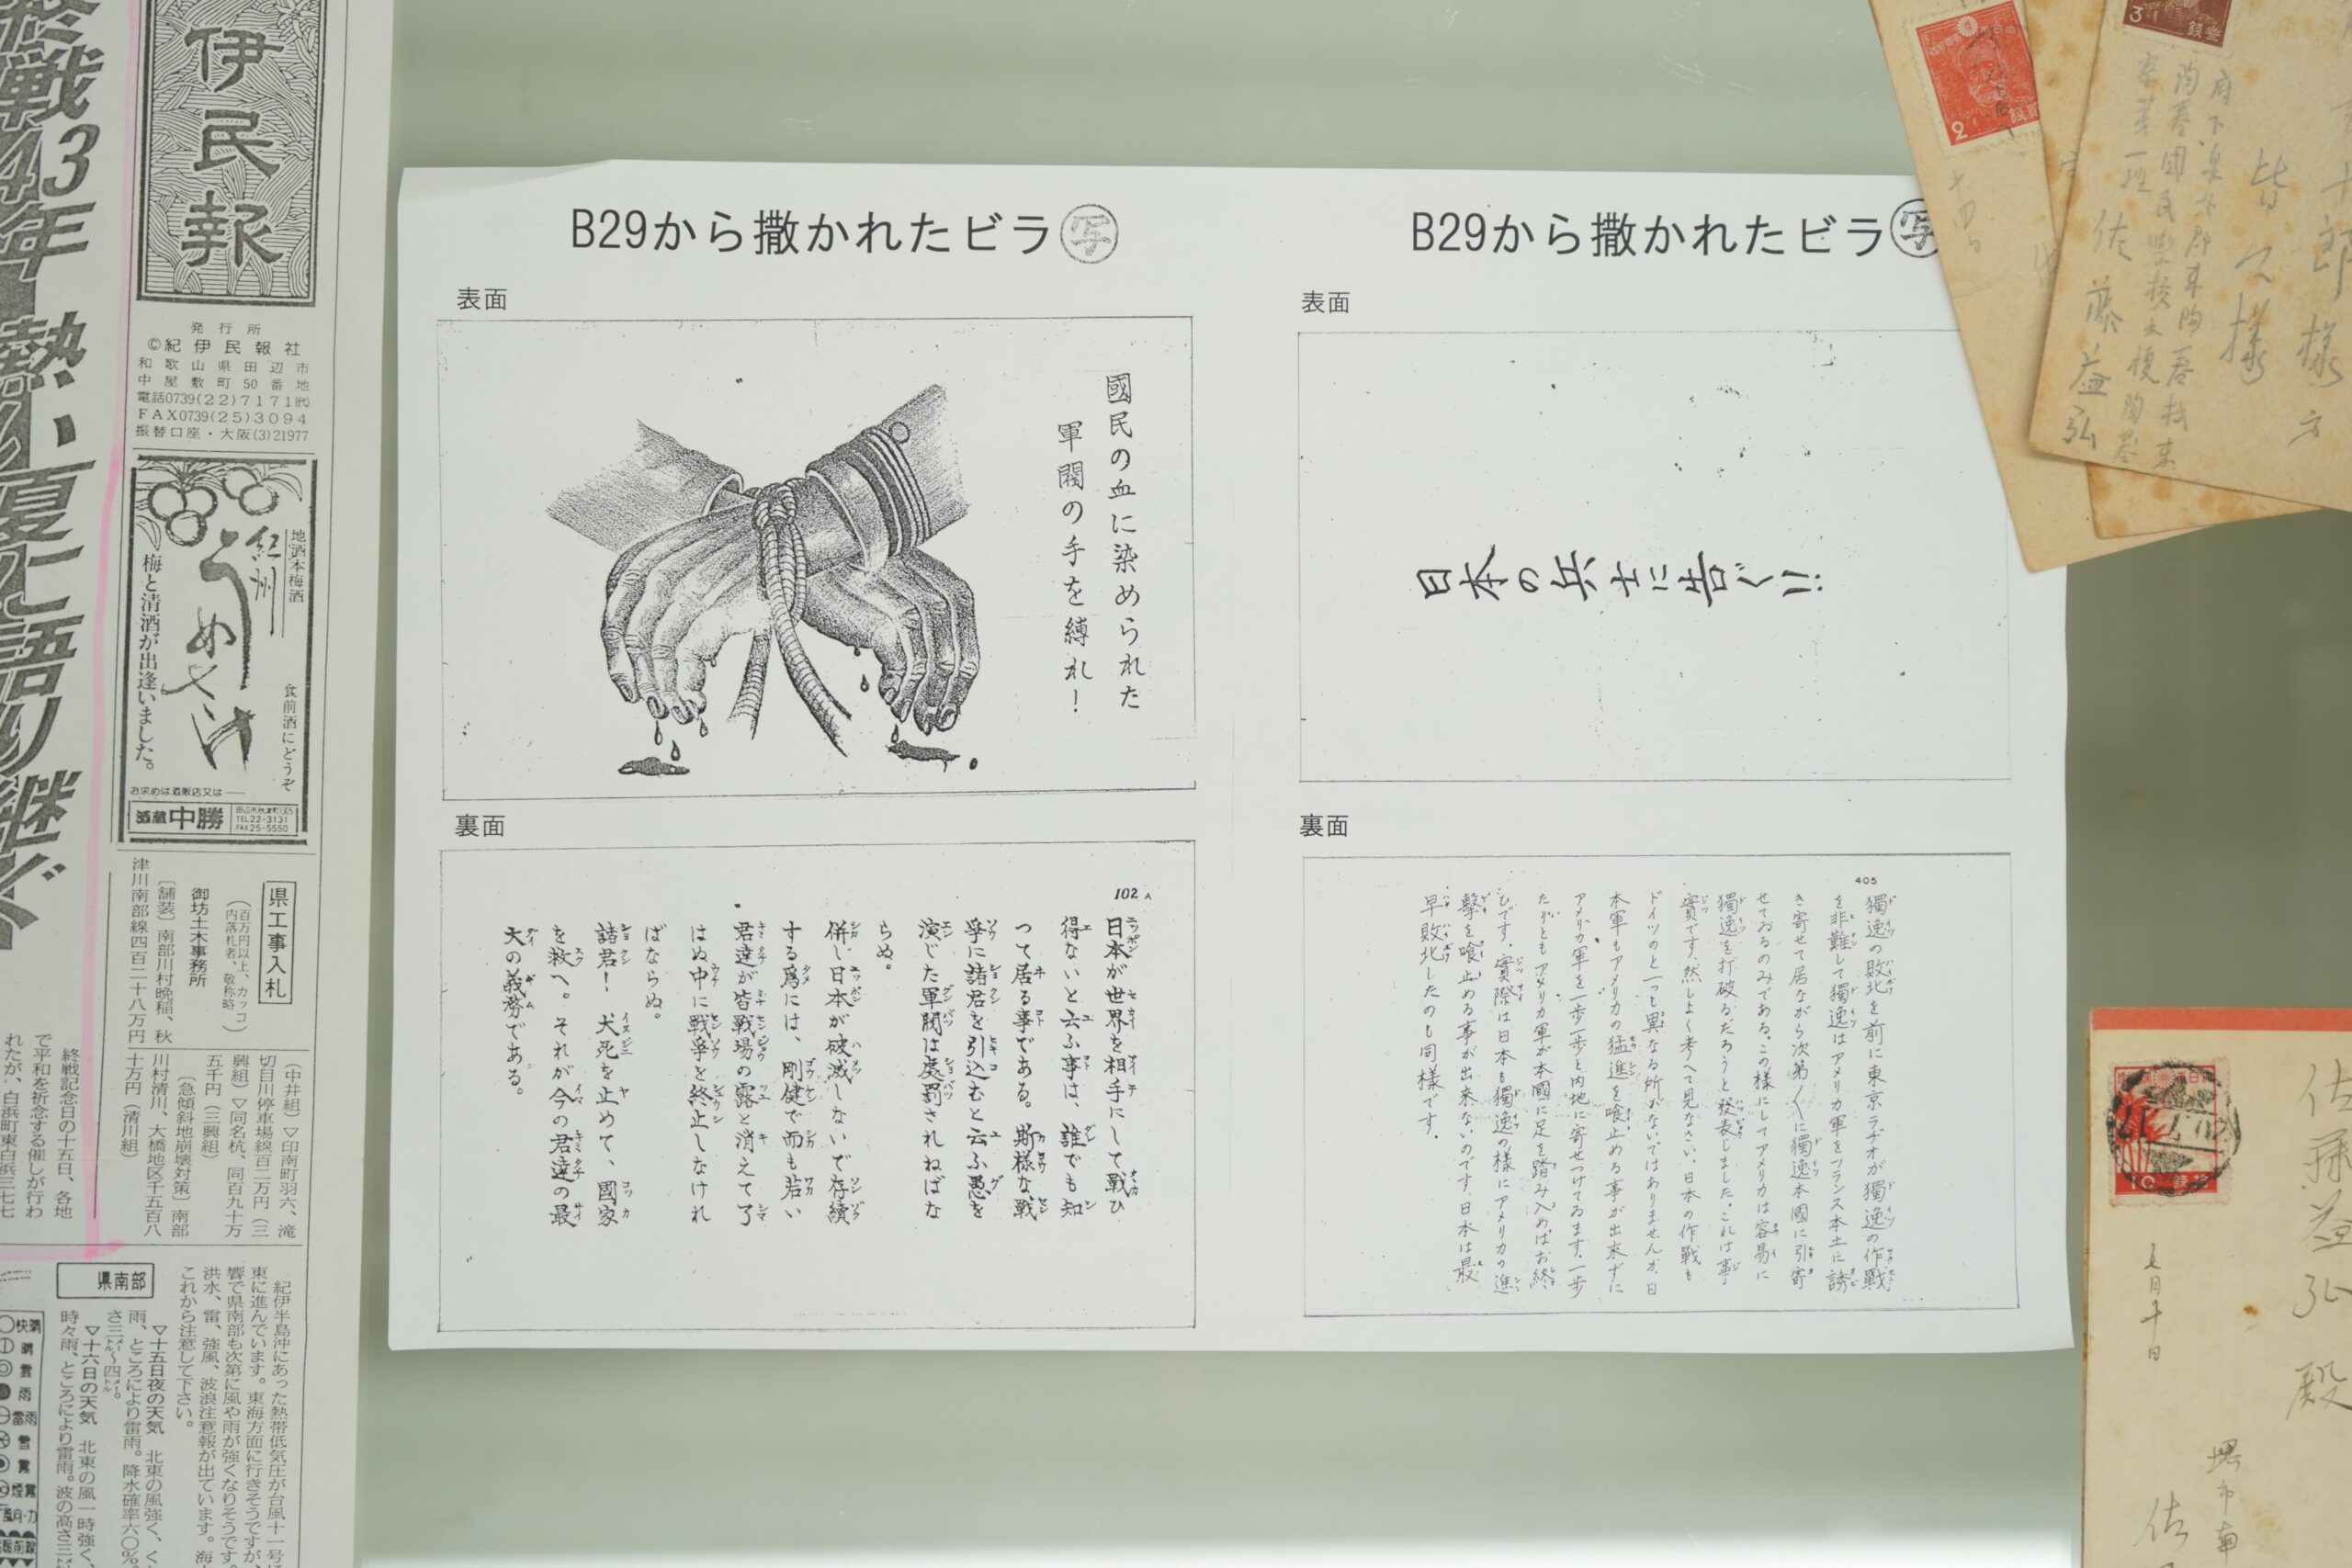 終戦43年 熱い夏に語り継ぐ
伊民報
発行所
©紀伊民報社
和歌山県田辺市
中屋敷町50番地
電話0739(22)7171㈹
FAX0739(25)3094
振替口座・大阪(3)21977
地酒本梅酒
紀州
うめさけ
梅と清酒が出逢いました。
食前酒にどうぞ
お求めは酒販店又は
酒蔵中勝
TEL22-3131
FAX25-5550
県工事入札
(百万円以上、カッコ
内落札者、敬称略)
御坊土木事務所
〔舗装〕南部川村晩稲、秋
津川南部線四百二十八万円
(中井組)▽印南町羽六、滝
切目川停車場線百二万円(三
興組)▽同名杭、同百九十万
五千円(三興組)
〔急傾斜地崩壊対策〕南部
川村清川、大橋地区千五百八
十万円(清川組)
終戦記念日の十五日、各地
で平和を祈念する催しが行わ
れたが、白浜町東白浜三七七
県南部
紀伊半島沖にあった熱帯低気圧が台風十一号に
東に進んでいます。東海方面に行きそうですが、
響で県南部も次第に風や雨が強くなりそうです。
洪水、雷、強風、波浪注意報が出ています。海
これから注意して下さい。
▽十五日夜の天気 北東の風強く、く
雨、ところにより雷雨。降水確率六〇%。
さ三㍍〜四㍍。
▽十六日の天気 北東の風一時強く、
時々雨、ところにより雷雨。波の高さ三
快晴
晴
曇
雨
雷雨
雪
霧
B29から撒かれたビラ㊢
表面
國民の血に染められた
軍閥の手を縛れ!
裏面
102 A
日本が世界を相手にして戦ひ
得ないと云ふ事は、誰でも知
つて居る事である。斯様な戦
爭に諸君を引込むと云ふ愚を
演じた軍閥は處罰されねばな
らぬ。
併し日本が破滅しないで存續
する爲には、剛健で而も若い
君達が皆戦場の露と消えて了
はぬ中に戦爭を終止しなけれ
ばならぬ。
諸君! 犬死を止めて、國家
を救へ。それが今の君達の最
大の義務である。
B29から撒かれたビラ㊢
表面
日本の兵士に告ぐ!!
裏面
405
獨逸の敗北を前に東京ラヂオが獨逸の作戦
を非難して獨逸はアメリカ軍をフランス本土に誘
き寄せて居ながら次第〱に獨逸本國に引寄
せてゐるのみである。この様にしてアメリカは容易に
獨逸を打破るだらうと発表しました。これは事
實です、然しよく考へて見なさい。日本の作戦も
ドイツのと一つも異なる所がないではありませんか、日
本軍もアメリカの猛進を喰止める事が出来ずに
アメリカ軍を一歩一歩と内地に寄せつけてゐます。一歩
たりともアメリカ軍が本國に足を踏み入めばお終
ひです。實際は日本も獨逸の様にアメリカの進
撃を喰止める事が出来ないのです。日本は最
早敗北したのも同様です。
2
十四日
3
十郎様方
皆久様
府下泉北郡東陶器村
佐藤益弘
佐藤益弘殿
七月十日
堺市
佐